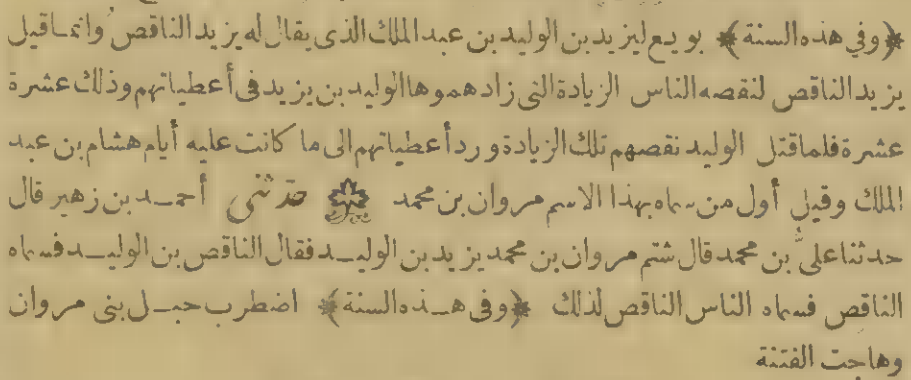 ﴿وفي هذه السنة﴾ بويع ليزيد بن الوليد بن عبد الملك الذى يقال له يزيد الناقص وانما قيل
يزيد الناقص لنقصه الناس الزيادة التى زادهموها الوليد بن يزيد فى أعطياتهم وذلك عشرة
عشرة فلما قتل الوليد نقصهم تلك الزيادة ورد أعطياتهم الى ما كانت عليه أيام هشام بن عبد
الملك وقيل أول من سماه بهذا الاسم مروان بن محمد حدثنى أحمد بن زهير قال
حدثنا علىّ بن محمد قال شتم مروان بن محمد يزيد بن الوليد فقال الناقص بن الوليد فسماه
الناقص فسماه الناس الناقص لذلك ﴿وفى هذه السنة﴾ اضطرب حبل بنى مروان
وهاجت الفتنة